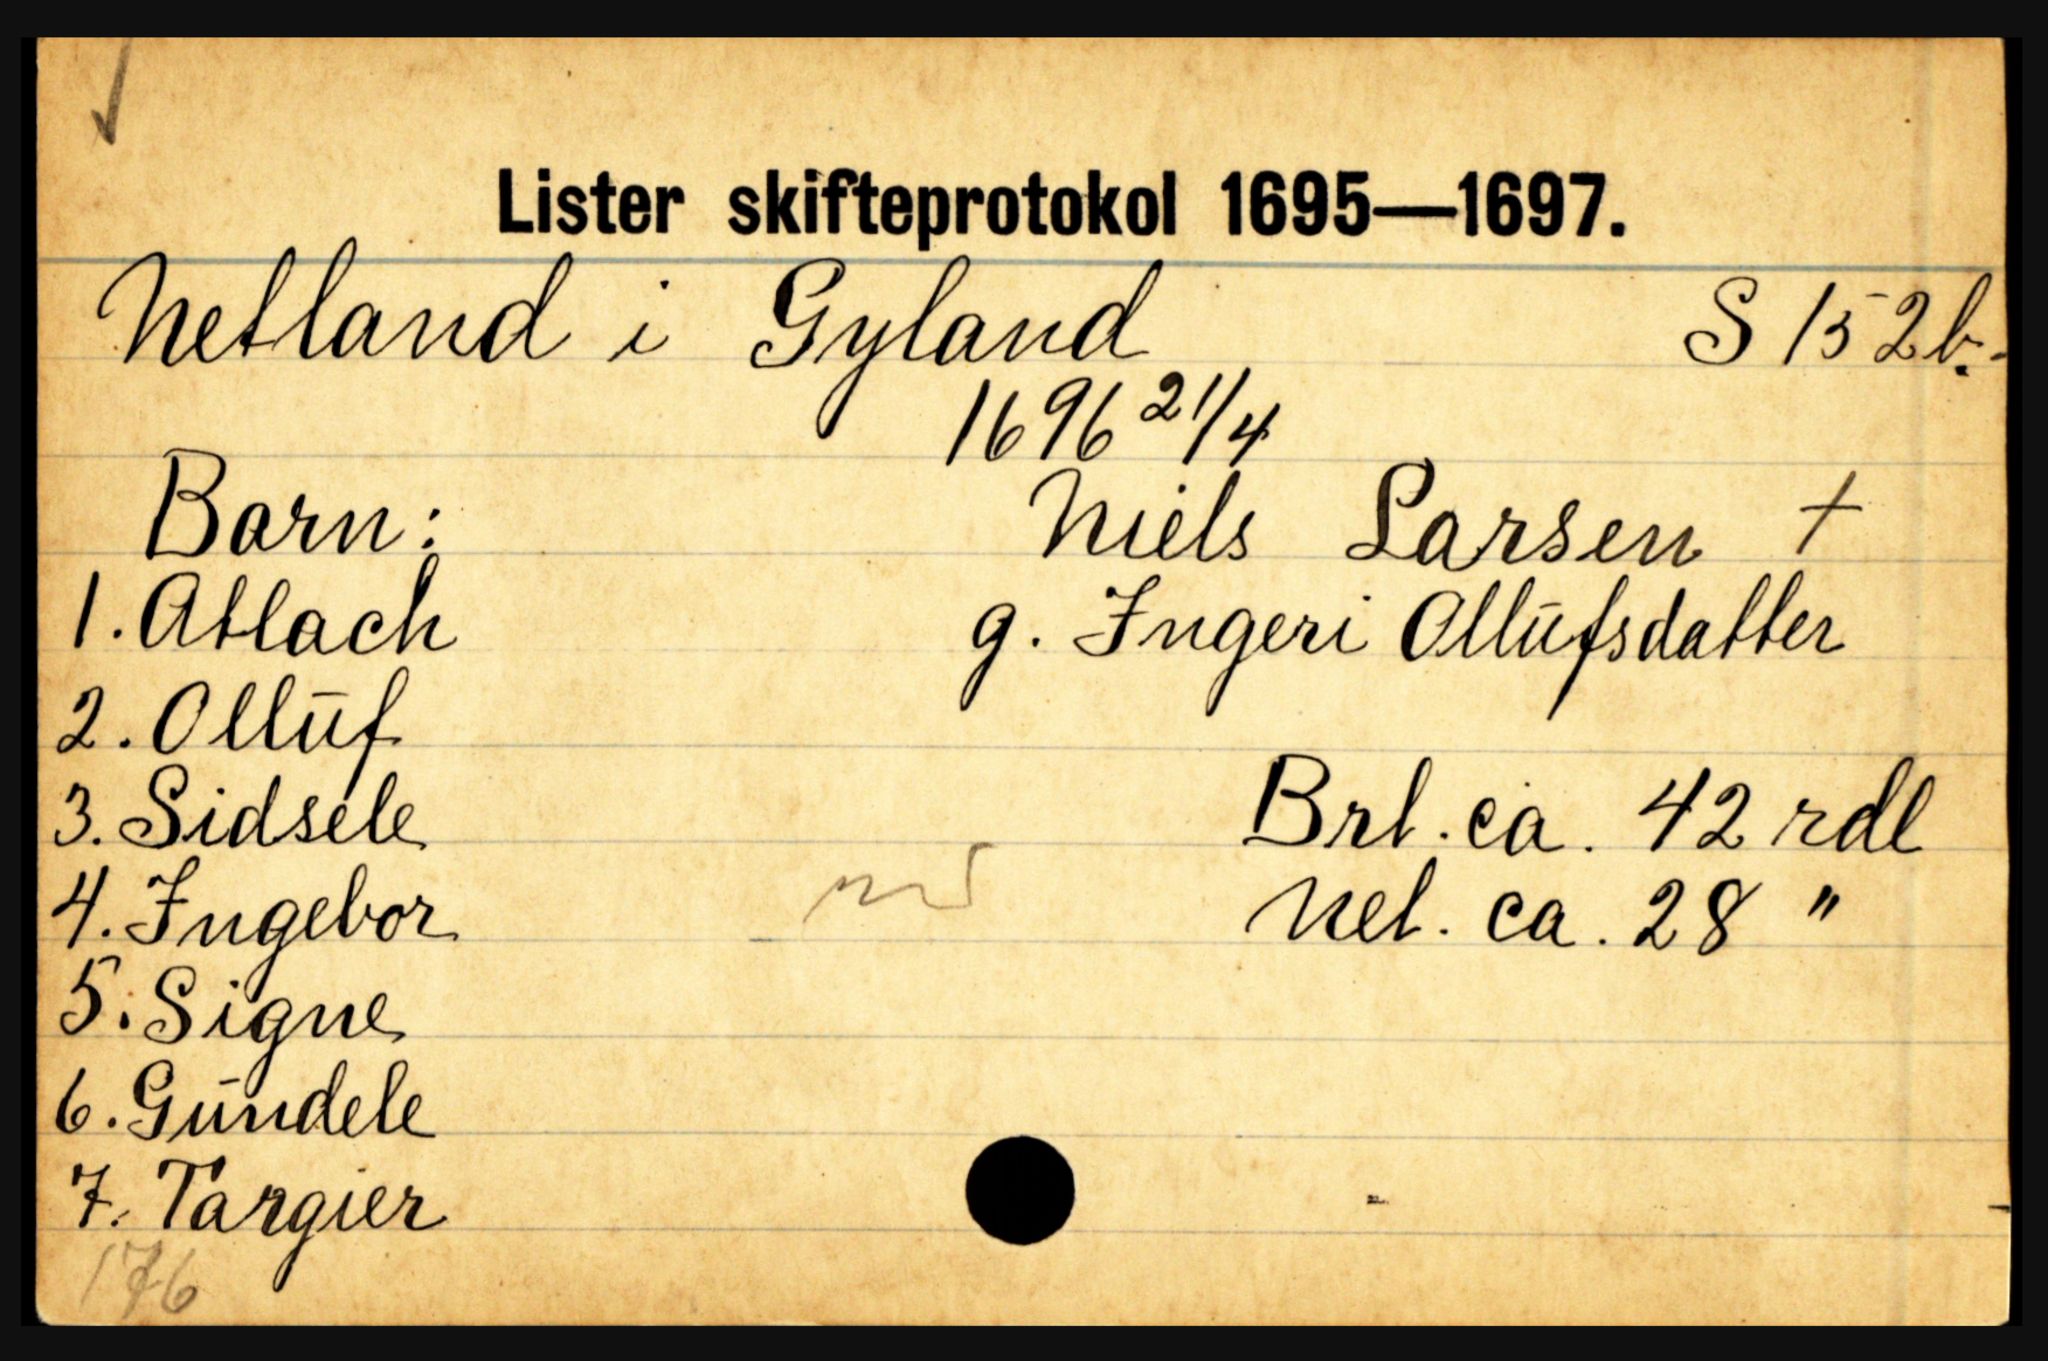 Lister skifteprotokol 1695—1697.
Netland i Gyland S 152b.
1696 21/4
Niels Larsen +
g. Ingeri Ollūfsdatter
Brt. ca. 42 rdl
Net. ca. 28 "
Barn:
1. Atlach
2. Ollūf
3. Sidsele
4. Ingebor
5. Signe
6. Gūndele
7. Targier
176